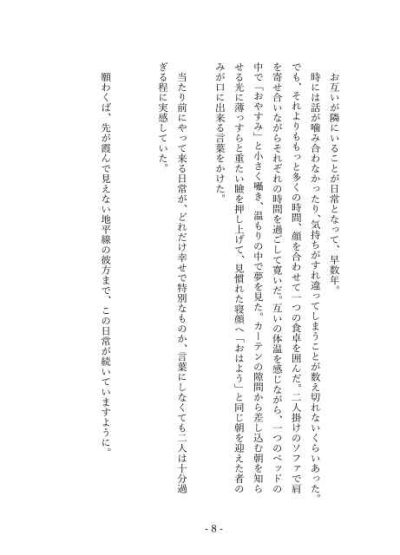 お互いが隣にいることが日常となって、早数年。
時には話が噛み合わなかったり、気持ちがすれ違ってしまうことが数え切れないくらいあった。
でも、それよりももっと多くの時間、顔を合わせて一つの食卓を囲んだ。二人掛けのソファで肩
を寄せ合いながらそれぞれの時間を過ごして寛いだ。互いの体温を感じながら、一つのベッドの
中で「おやすみ」と小さく囁き、温もりの中で夢を見た。カーテンの隙間から差し込む朝を知ら
せる光に薄っすらと重たい瞼を押し上げて、見慣れた寝顔へ「おはよう」と同じ朝を迎えた者の
みが口に出来る言葉をかけた。
当たり前にやって来る日常が、どれだけ幸せで特別なものか、言葉にしなくても二人は十分過
ぎる程に実感していた。
願わくば、先が霞んで見えない地平線の彼方まで、この日常が続いていますように。
- 8 -